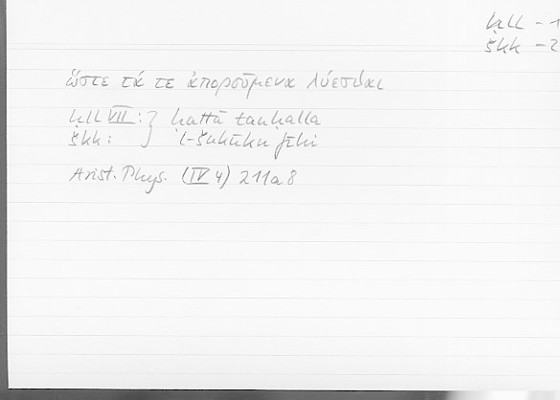 ḥll – 1
škk – 2
ὥστε τά τε ἀπορούμενα λύεσθαι
ḥll VII: } ḥattā tanḥalla
škk: } 'l-šukūku fīhi
Arist. Phys. (IV 4) 211a8